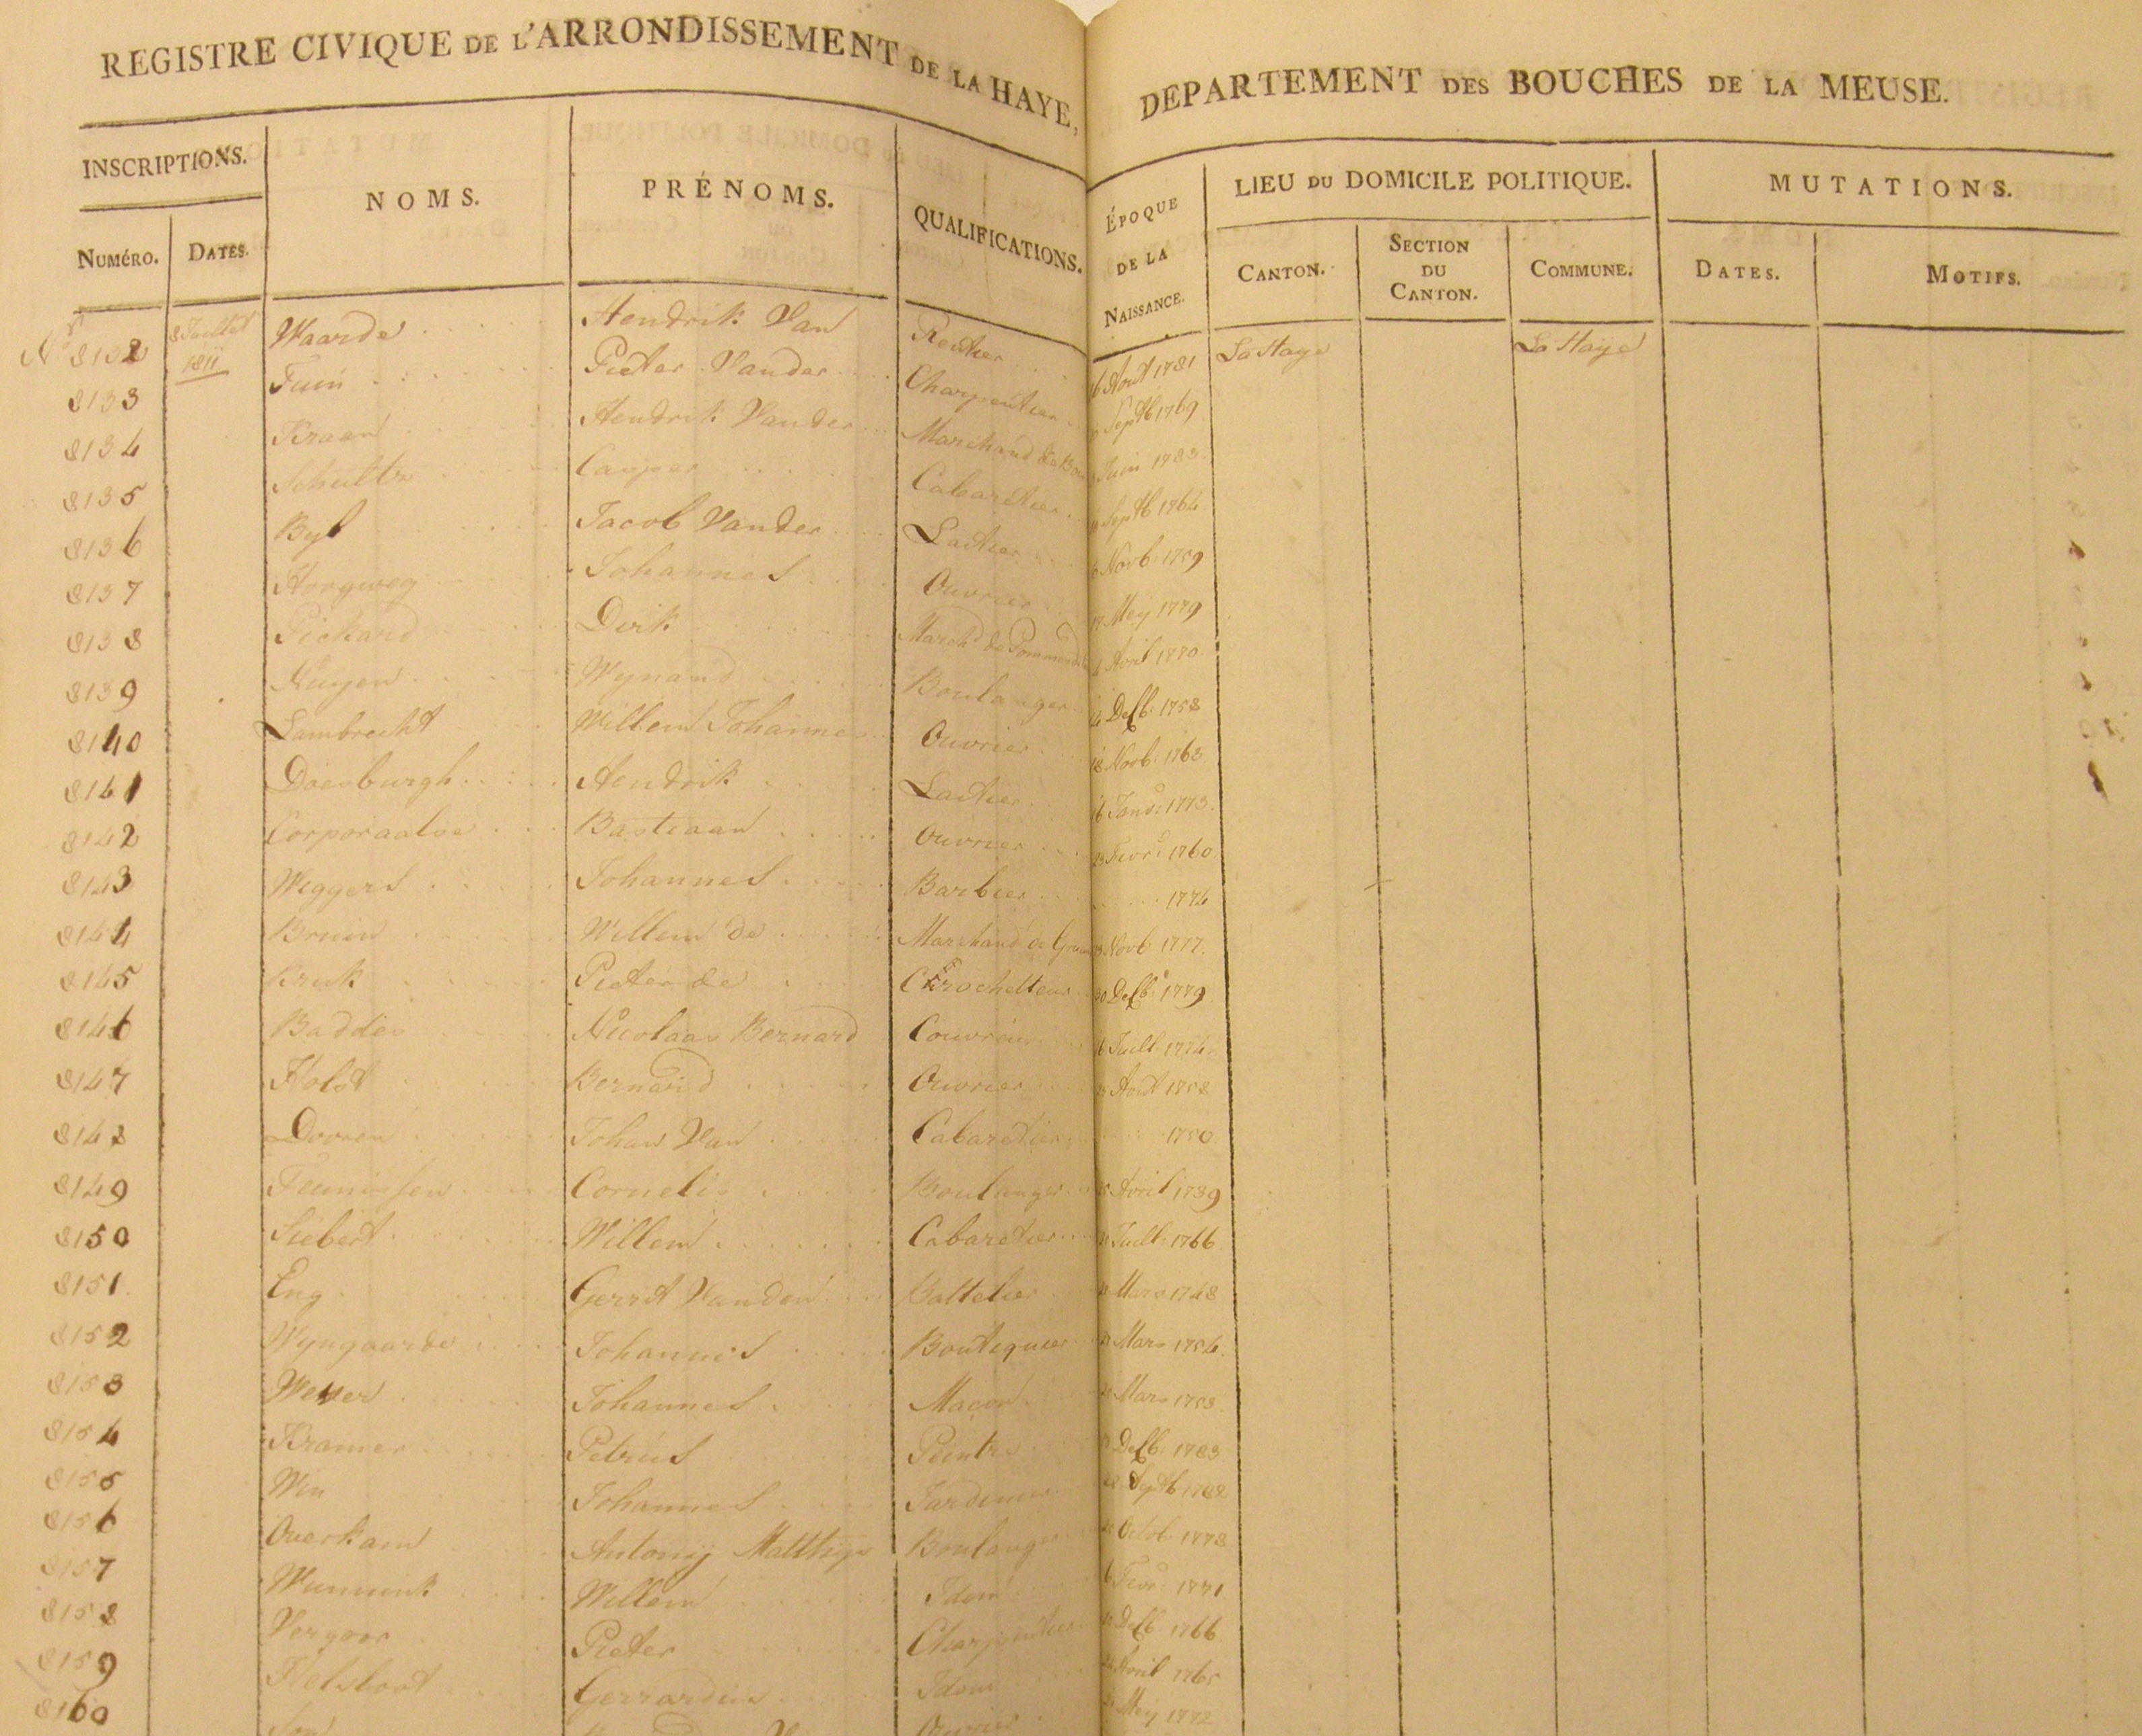 REGISTRE CIVIQUE DE L'ARRONDISSEMENT DE LA HAYE, DEPARTEMENT DES BOUCHES DE LA MEUSE.
INSCRIPTIONS. NOMS. PRÉNOMS. QUALIFICATIONS. ÉPOQUE DE LA NAISSANCE. LIEU DU DOMICILE POLITIQUE. MUTATIONS.
NUMÉRO. DATES. CANTON. SECTION DU CANTON. COMMUNE. DATES. MOTIFS.
8132 8 Juillet 1811 Waarde Hendrik Van Rentier 6 Aout 1781 La Haye La Haye
8133 Tuin Pieter Vander Charpentier Septb 1769
8134 Kraan Hendrik Vander Marchand de Juin 1783
8135 Schultz Casper Cabaretier Septb 1764
8136 Byl Jacob Vander Laitier Novb 1759
8137 Hoogweg Johannes Ouvrier Mey 1779
8138 Pickard Dirk March de Avril 1770
8139 Nuyen Wynand Boulanger Deçb: 1758
8140 Lambrecht Willem Johannes Ouvrier 18 Novb: 1763
8141 Doesburgh Hendrik Laitier 6 Janvr: 1773
8142 Corporaalse Bastiaan Ouvrier Fevr: 1760
8143 Weggers Johannes Barbier 1774
8144 Bruin Willem de Marchand de Novb 1777.
8145 Kruk Pieter de Crochetteur 30 Deçb: 1779
8146 Badder Nicolaas Bernard Couvreur 6 Juill: 1774
8147 Holst Bernard Ouvrier Aout 1758
8148 Dooren Johan Van Cabaretier 1750
8149 Teunissen Cornelis Boulanger Avril 1789
8150 Siebert Willem Cabaretier Juill: 1766
8151 Eng Gerrit Vanden Battelier Mars 1748
8152 Wyngaarde Johannes Boutiquier Mars 1754
8153 Johannes Macon Mars 1758
8154 Kramer Petrus Peintre Deçb: 1783
8155 Win Johannes Jardinier Septb 1782
8156 Overkam Antonij Matthys Boulanger Octob 1778
8157 Wennink Willem Idem 6 Fevr: 1771
8158 Vergoor Pieter Charpentier Deçb 1766
8159 Helsloot Gerrardus Idem Avril 1765
8160 Ouvrier Mey 1772